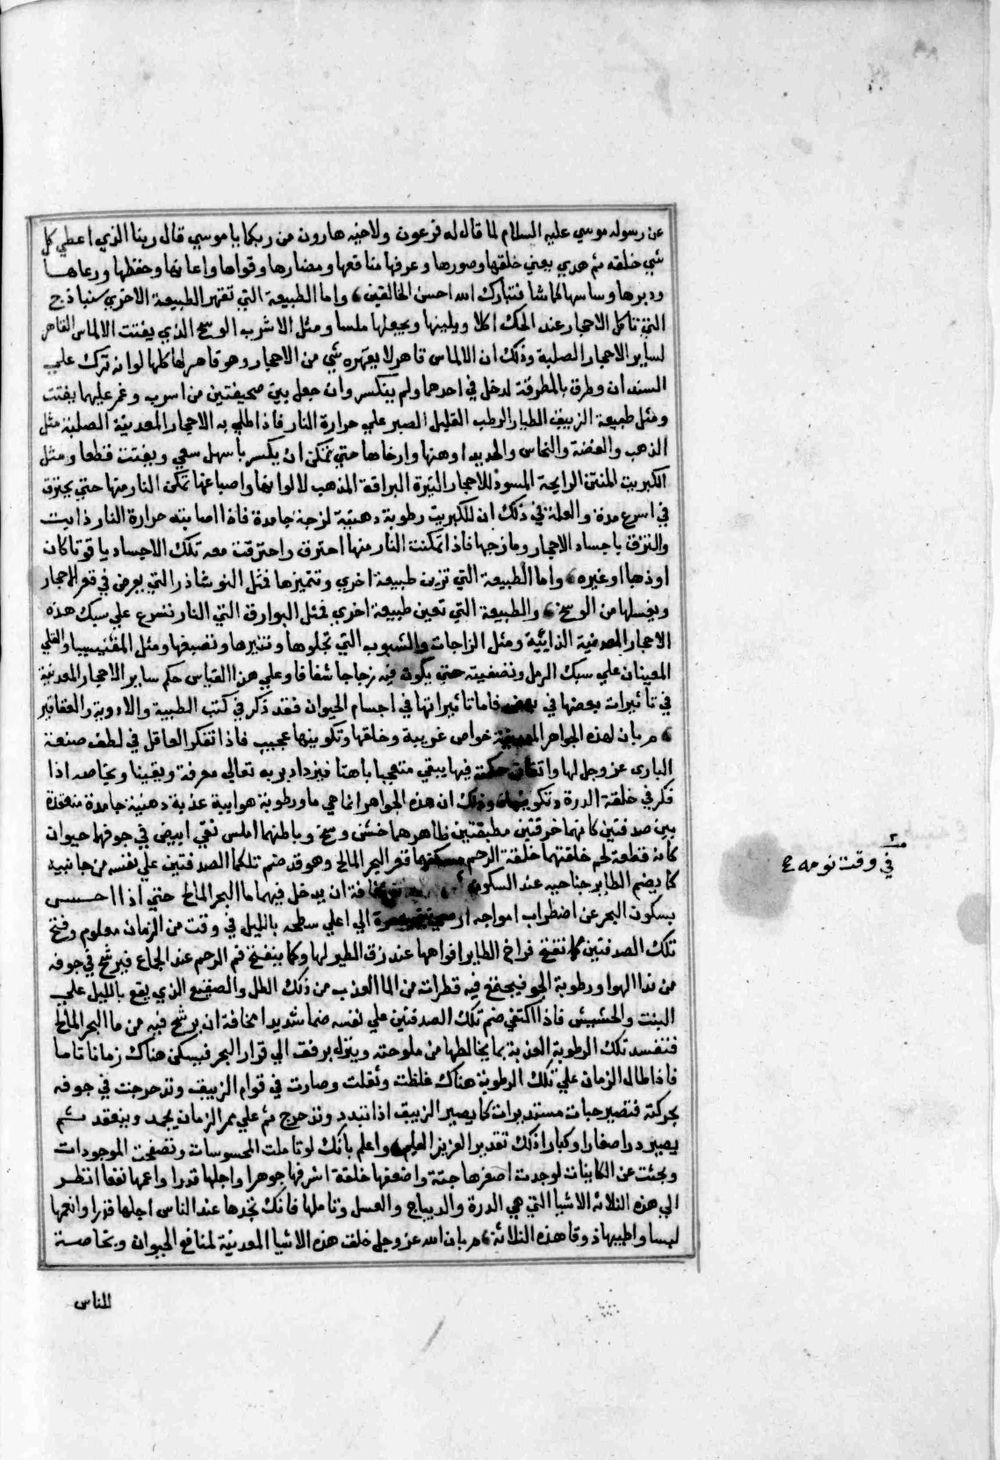 عن رسوله موسي عليه السلام لما قال له فرعون ولاخيه هارون من ربكما يا موسي قال ربنا الذي اعطي كل
شي خلقه ثم هدي يعني خلقها وصورها وعرفها منافعها ومضارها وقواها واعانها وحفظها ورعاها
ودبرها وساسها كما شا فتبارك الله احسن الخالقين واما الطبيعة التي تقهر الطبيعة الاخري سنباذج
التي تاكل الاحجار عند الحك اكلا ويلينها ويجعلها ملسا ومثل الاشرب الوسخ الذي يفتت الالماس القاهر
لساير الاحجار الصلبة وذلك ان الالماس قاهر لا يعهره شي من الاحجار وهو قاهر لها كلها لو انه ترك علي
السندان وطرق بالمطرقة لدخل في احدهما ولم ينكسر وان جعل بين صحيفتين من اسرب وغمر عليهما يفتت
ومثل طبيعة الزيبق الطيار الرطب القليل الصبر علي حرارة النار فاذا طلي به الاحجار المعدنية الصلبة مثل
الذهب والفضة والنحاس والحديد اوهنها وارخاها حتي يمكن ان يكسر باسهل سعي ويفتت قطعا ومثل
الكبريت المنتن الرايحة المسود للاحجار النيرة البراقة المذهب لالوانها واصباغها تمكن النار منها حتي يحترق
في اسرع مدة والعلة في ذلك ان للكبريت رطوبة دهنية لزجة جامدة فاذا اصابته حرارة النار ذابت
والتزق باجساد الاحجار ومازجها فاذا تمكنت النار منها احترق واحترقت معه تلك الاجساد ياقوتا كان
او ذهبا او غيره واما الطبيعة التي تزين طبيعة اخري وتنميزها فمثل النوشاذر التي يعرض في قعر الاحجار
ويغسلها من الوسخ والطبيعة التي تعين طبيعة اخري فمثل البوارق التي النار تسرع علي سبك هذه
الاحجار المعدنية الذايبة ومثل الزاجات والشبوب التي تجلوها وتنيرها وتصبغها ومثل المغنيسيا والقلي
المعينان علي سبك الرمل وتصفيته حتي يكون فيه زجاجا شفافا وعلي هذا القياس حكم ساير الاحجار المعدنية
في تاثيرات بعضها في بعض فاما تاثيراتها في اجسام الحيوان فقد ذكر في كتب الطبية والادوية والعقاقير
بان لهذه الجواهر المعدنية خواص غريبة وخلقها وتكوينها عجيب فاذا تفكر العاقل في لطف صنعة
الباري عز وجل لها واتقان حكمته فيها يبقي متعجبا باهتا فيزداد بربه تعالي معرفة ويقينا وبخاصه اذا
فكر في خلقة الدرة وتكوينها وذلك ان هذه الجواهر انما هي ما ورطوبة هوايية عذبة دهنية جامدة منعقدة
بين صدفتين كانهما خزفتين مطبقتين ظاهرهما خشن وسخ وباطنهما املس نقي ابيض في جوفهما حيوان
كانه قطعة لحم خلقتهما خلقة الرحم مسكنهما قعر البحر المالح وهو قد ضم تلكما الصدفتين علي نفسه من جانبيه
كما يضم الطاير جناحيه عند السكون مخافة ان يدخل فيهما ما البحر المالح حتي اذا احسس
بسكون البحر عن اضطراب امواجه الي اعلي سطحه بالليل في وقت من الزمان معلوم وفتح
تلك الصدفتين كما تفتح فراخ الطاير افواهها عند زق الطيور لها وكما ينفتح فم الرحم عند الجماع فيرشح في جوفه
من ندا الهوا ورطوبة الجو فيجتمع فيه قطرات من الما العذب من ذلك الطل والصقيع الذي يقع بالليل علي
النبت والحشيش فاذا اكتفي ضم تلك الصدفتين علي نفسه ضما شديدا مخافة ان يرشح فيه من ما البحر المالح
فتفسد تلك الرطوبة العذبة بما يخالطها من ملوحته وينزل برفق الي قرار البحر فيسكن هناك زمانا تاما
فاذا طال الزمان علي تلك الرطوبة هناك غلظت وثقلت وصارت في قوام الزيبق وتدحرجت في جوفه
بحركته فتصير حبات مستديرات كما يصير الزيبق اذا تبدد وتدحرج ثم علي ممر الزمان يجمد وينعقد ثم
يصير درا صغارا وكبارا ذلك تقدير العزيز العليم واعلم بانك لو تاملت المحسوسات وتصفحت الموجودات
وبحثت عن الكاينات لوجدت اصغرها جثة واضعفها خلقة اشرفها جوهرا واجلها قدرا واعمها نفعا انظر
الي هذه الثلاثه الاشيا التي هي الدرة والديباج والعسل وتاملها فانك تجدها عند الناس اجلها قدرا وانعمها
لبسا واطيبها ذوقا هذه الثلاثة بان الله عز وجل خلق هذه الاشيا المعدنية لمنافع الحيوان وبخاصة
للناس
في وقت نومه